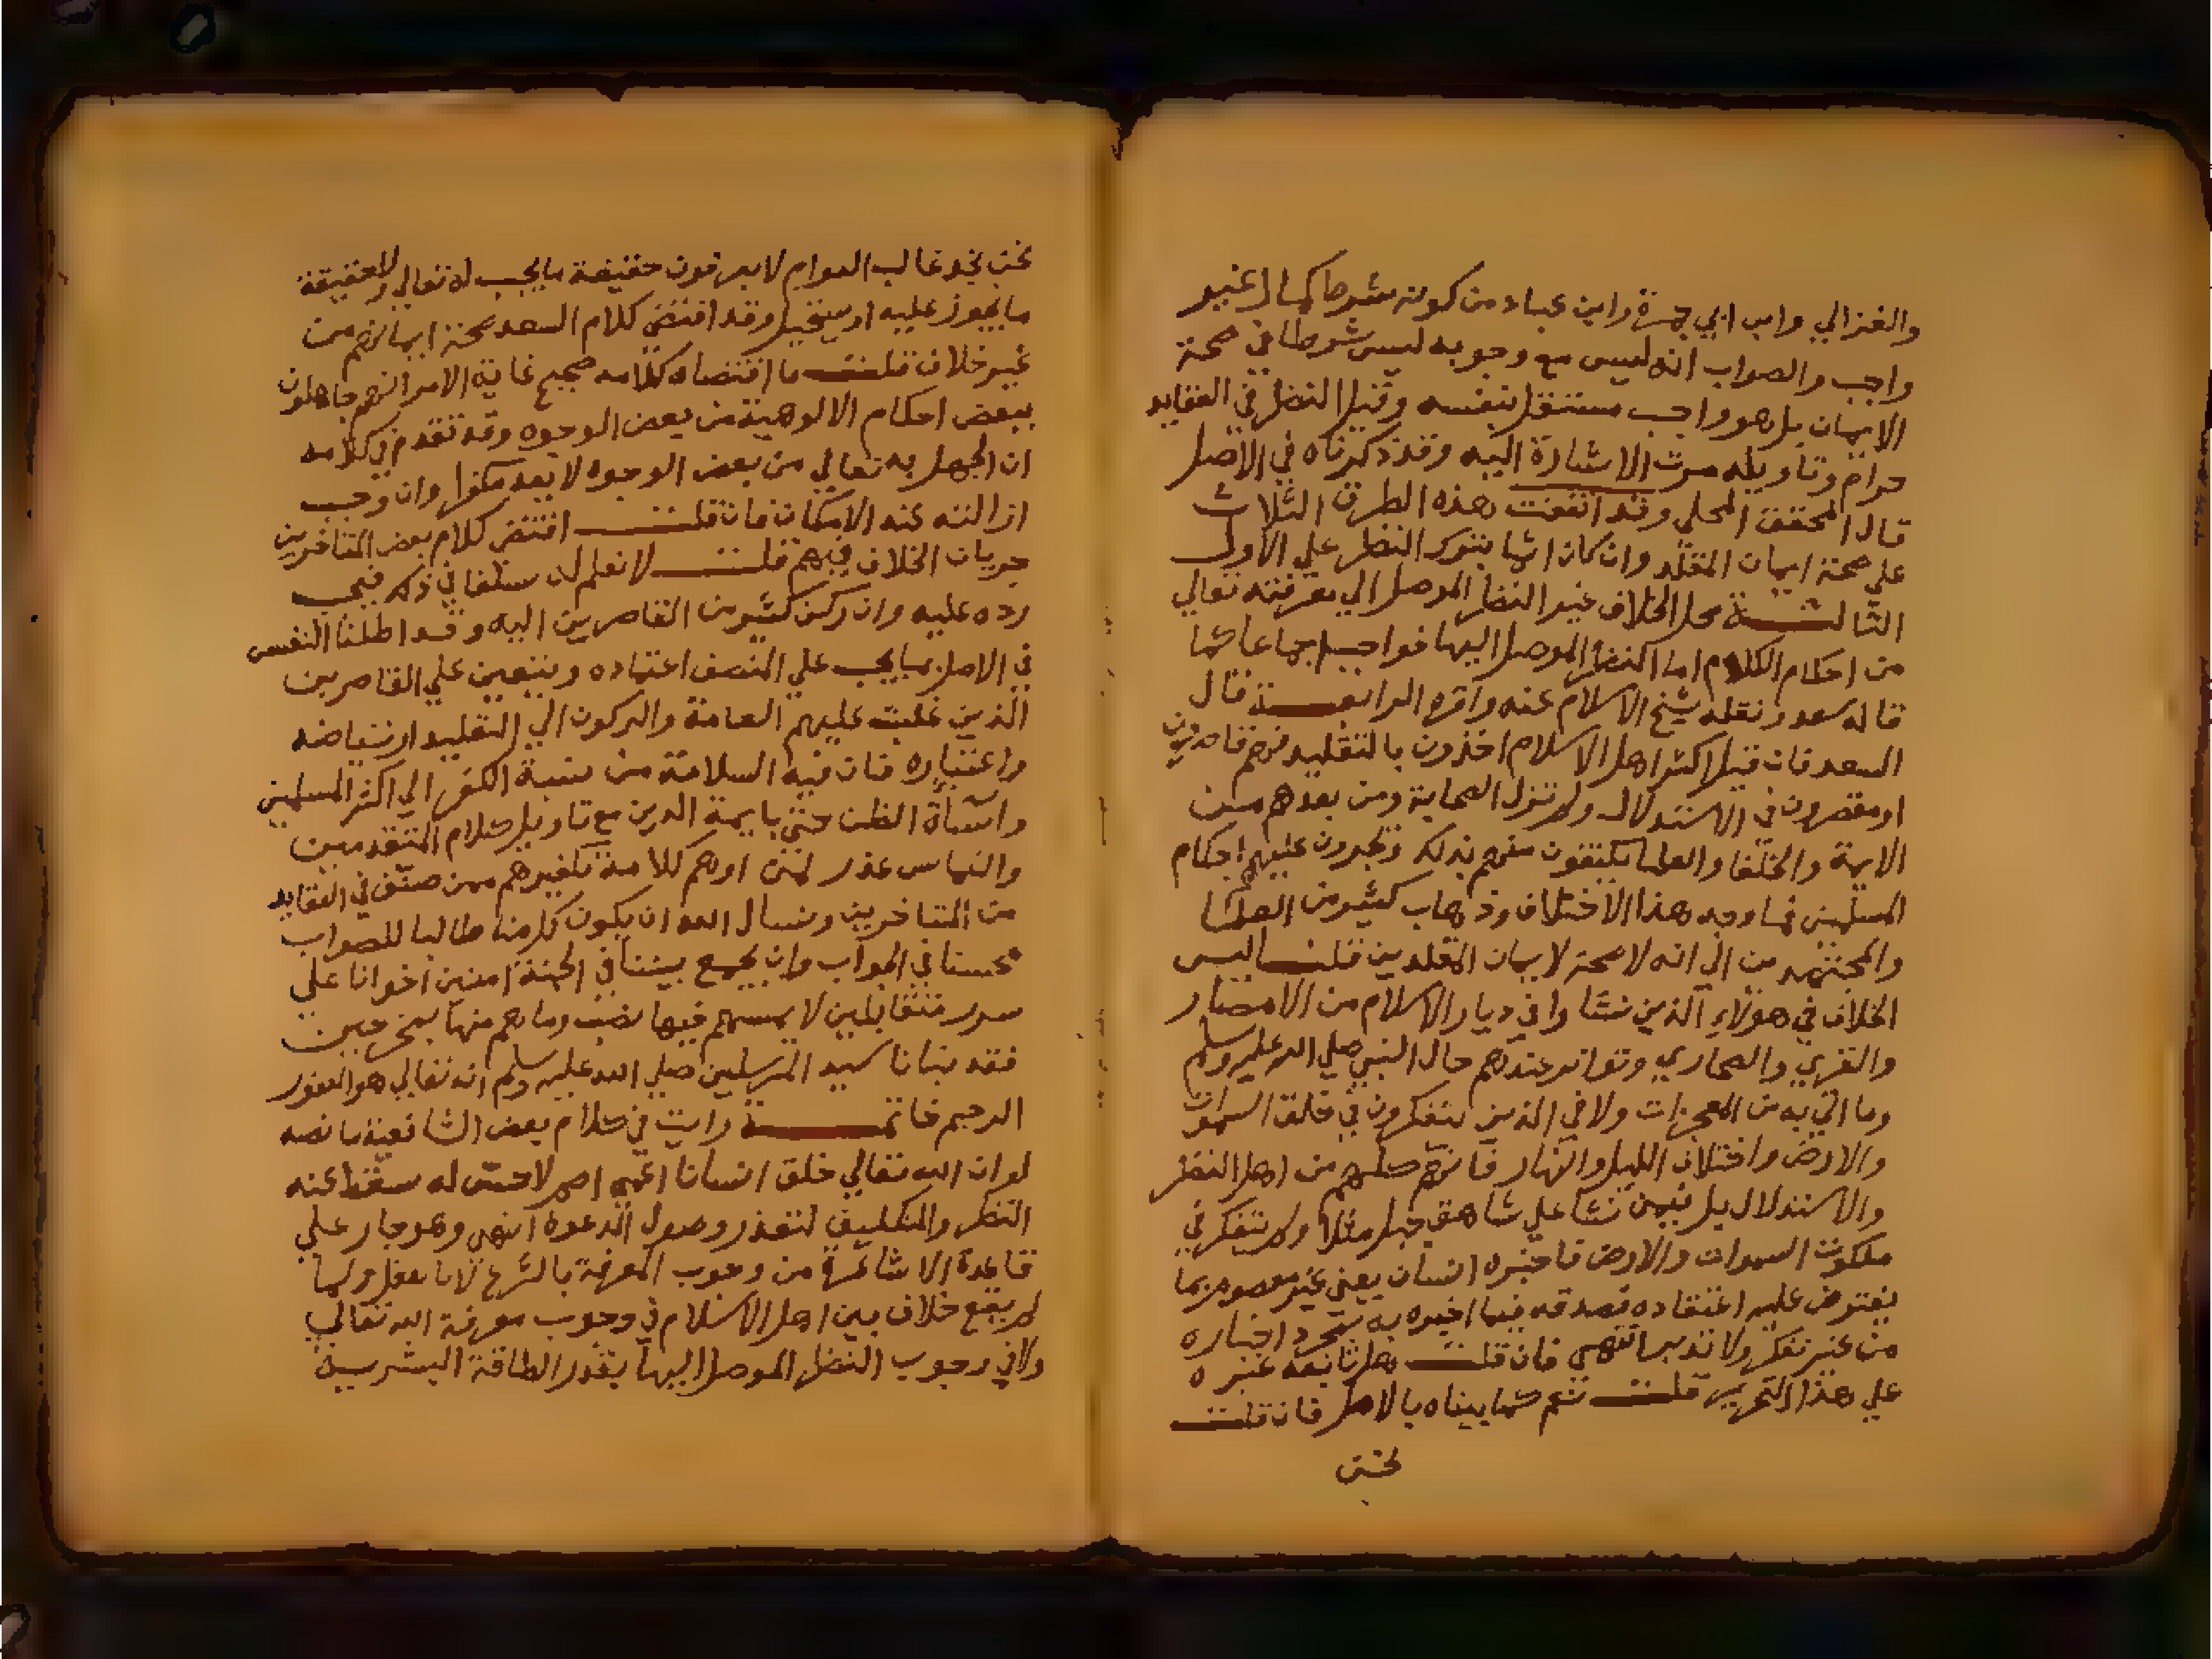 والغزالي وابن ابي جمرة وابن عباد من كونه شرط كمال غير
واجب والصواب انه ليس مع وجوبه ليس شرطا في صحة
الايمان بل هو واجب مستقل بنفسه وقيل النظر في العقايد
حرام وتاويله مرت الاشارة اليه وقد ذكرناه في الاصل
قال المحقق المحلي وقد اتفقت هذه الطرق الثلاث
علي صحة ايمان المقلد وان كان اثما بترك النظر علي الاول
الثالثة محل الخلاف غير النظر الموصل الي معرفته تعالي
من احكام الكلام اما النظر الموصل اليها فواجب اجماعا كما
قاله سعد ونقله شيخ الاسلام عنه واقره الرابعة قال
السعد فان قيل اكثر اهل الاسلام اخذون بالتقليد فهم قاصرون
او مقصرون في الاستدلال ولم تزل الصحابة ومن بعدهم من
الايمة والخلفا والعلما يكتفون منهم بذلك وتجرون عليهم احكام
المسلمين فما وجه هذا الاختلاف وذهاب كثير من العلما
والمجتهدين الي انه لا صحة لايمان المقلدين قلت ليس
الخلاف في هؤلاء الذين نشاوا في ديار الاسلام من الامصار
والقري والصحاري وتواتر عندهم حال النبي صلي الله عليه وسلم
وما اتي به من المعجزات ولا في الذين يتفكرون في خلق السموات
والارض واختلاف الليل والنهار فانهم كلهم من اهل النظر
والاستدلال بل فيمن نشا علي شاهق جبل مثلا ولم يتفكر في
ملكوت السموات والارض فاخبره انسان يعني غير معصوم بما
يفترض عليه اعتقاده فصدقه فيما اخبره به بمجرد اخباره
من غير تفكر ولا تدبر انتهي فان قلت هل تابعه غيره
علي هذا التحرير قلت نعم كما بيناه بالاصل فان قلت
نحن
نحن نجد غالب العوام لا يعرفون حقيقة ما يجب له تعالي ولا حقيقة
ما يجوز عليه او يستحيل وقد اقتضي كلام السعد صحة ايمانهم من
غير خلاف قلت ما اقتضاه كلامه صحيح غاية الامر انهم جاهلون
ببعض احكام الالوهية من بعض الوجوه وقد تقدم في كلامه
ان الجهل به تعالي من بعض الوجوه لا يعد مكفرا وان وجب
ازالته عند الامكان فان قلت اقتضي كلام بعض المتاخرين
جريان الخلاف فيهم قلت لا نعلم له سلفا في ذلك فيجب
رده عليه وان ركن كثير من القاصرين اليه وقد اطلنا النفس
في الاصل بما يجب علي المنصف اعتماده ويتعين علي القاصرين
الذين غلبت عليهم العامة والركون الي التقليد ارتياضه
واعتباره فان فيه السلامة من نسبة الكفر الي اكثر المسلمين
واساة الظن حتي بايمة الدين مع تاويل كلام المتقدمين
والتماس عذر لمن اوهم كلامه تكفيرهم ممن صنف في العقايد
من المتاخرين ونسال الله ان يكون كل منا طالبا للصواب
محسنا في الجواب وان يجمع بيننا في الجنة امنين اخوانا علي
سرر متقابلين لا يمسهم فيها نصب وما هم منها بمخرجين
فقد نبانا سيد المرسلين صلي الله عليه وسلم انه تعالي هو الغفور
الرحيم خاتمة رايت في كلام بعض الشافعية ما نصه
لو ان الله تعالي خلق انسانا اعمي اصم لا حس له سقط عنه
النظر والتكليف لتعذر وصول الدعوة انتهي وهو جار علي
قاعدة الاشاعرة من وجوب المعرفة بالشرع لا بالعقل ولما
لم يقع خلاف بين اهل الاسلام في وجوب معرفة الله تعالي
ولا في وجوب النظر الموصل اليها بقدر الطاقة البشرية